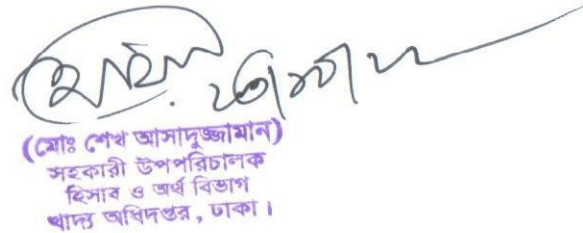 (মোঃ শেখ আসাদুজ্জামান)
সহকারী উপপরিচালক
হিসাব ও অর্থ বিভাগ
খাদ্য অধিদপ্তর, ঢাকা।